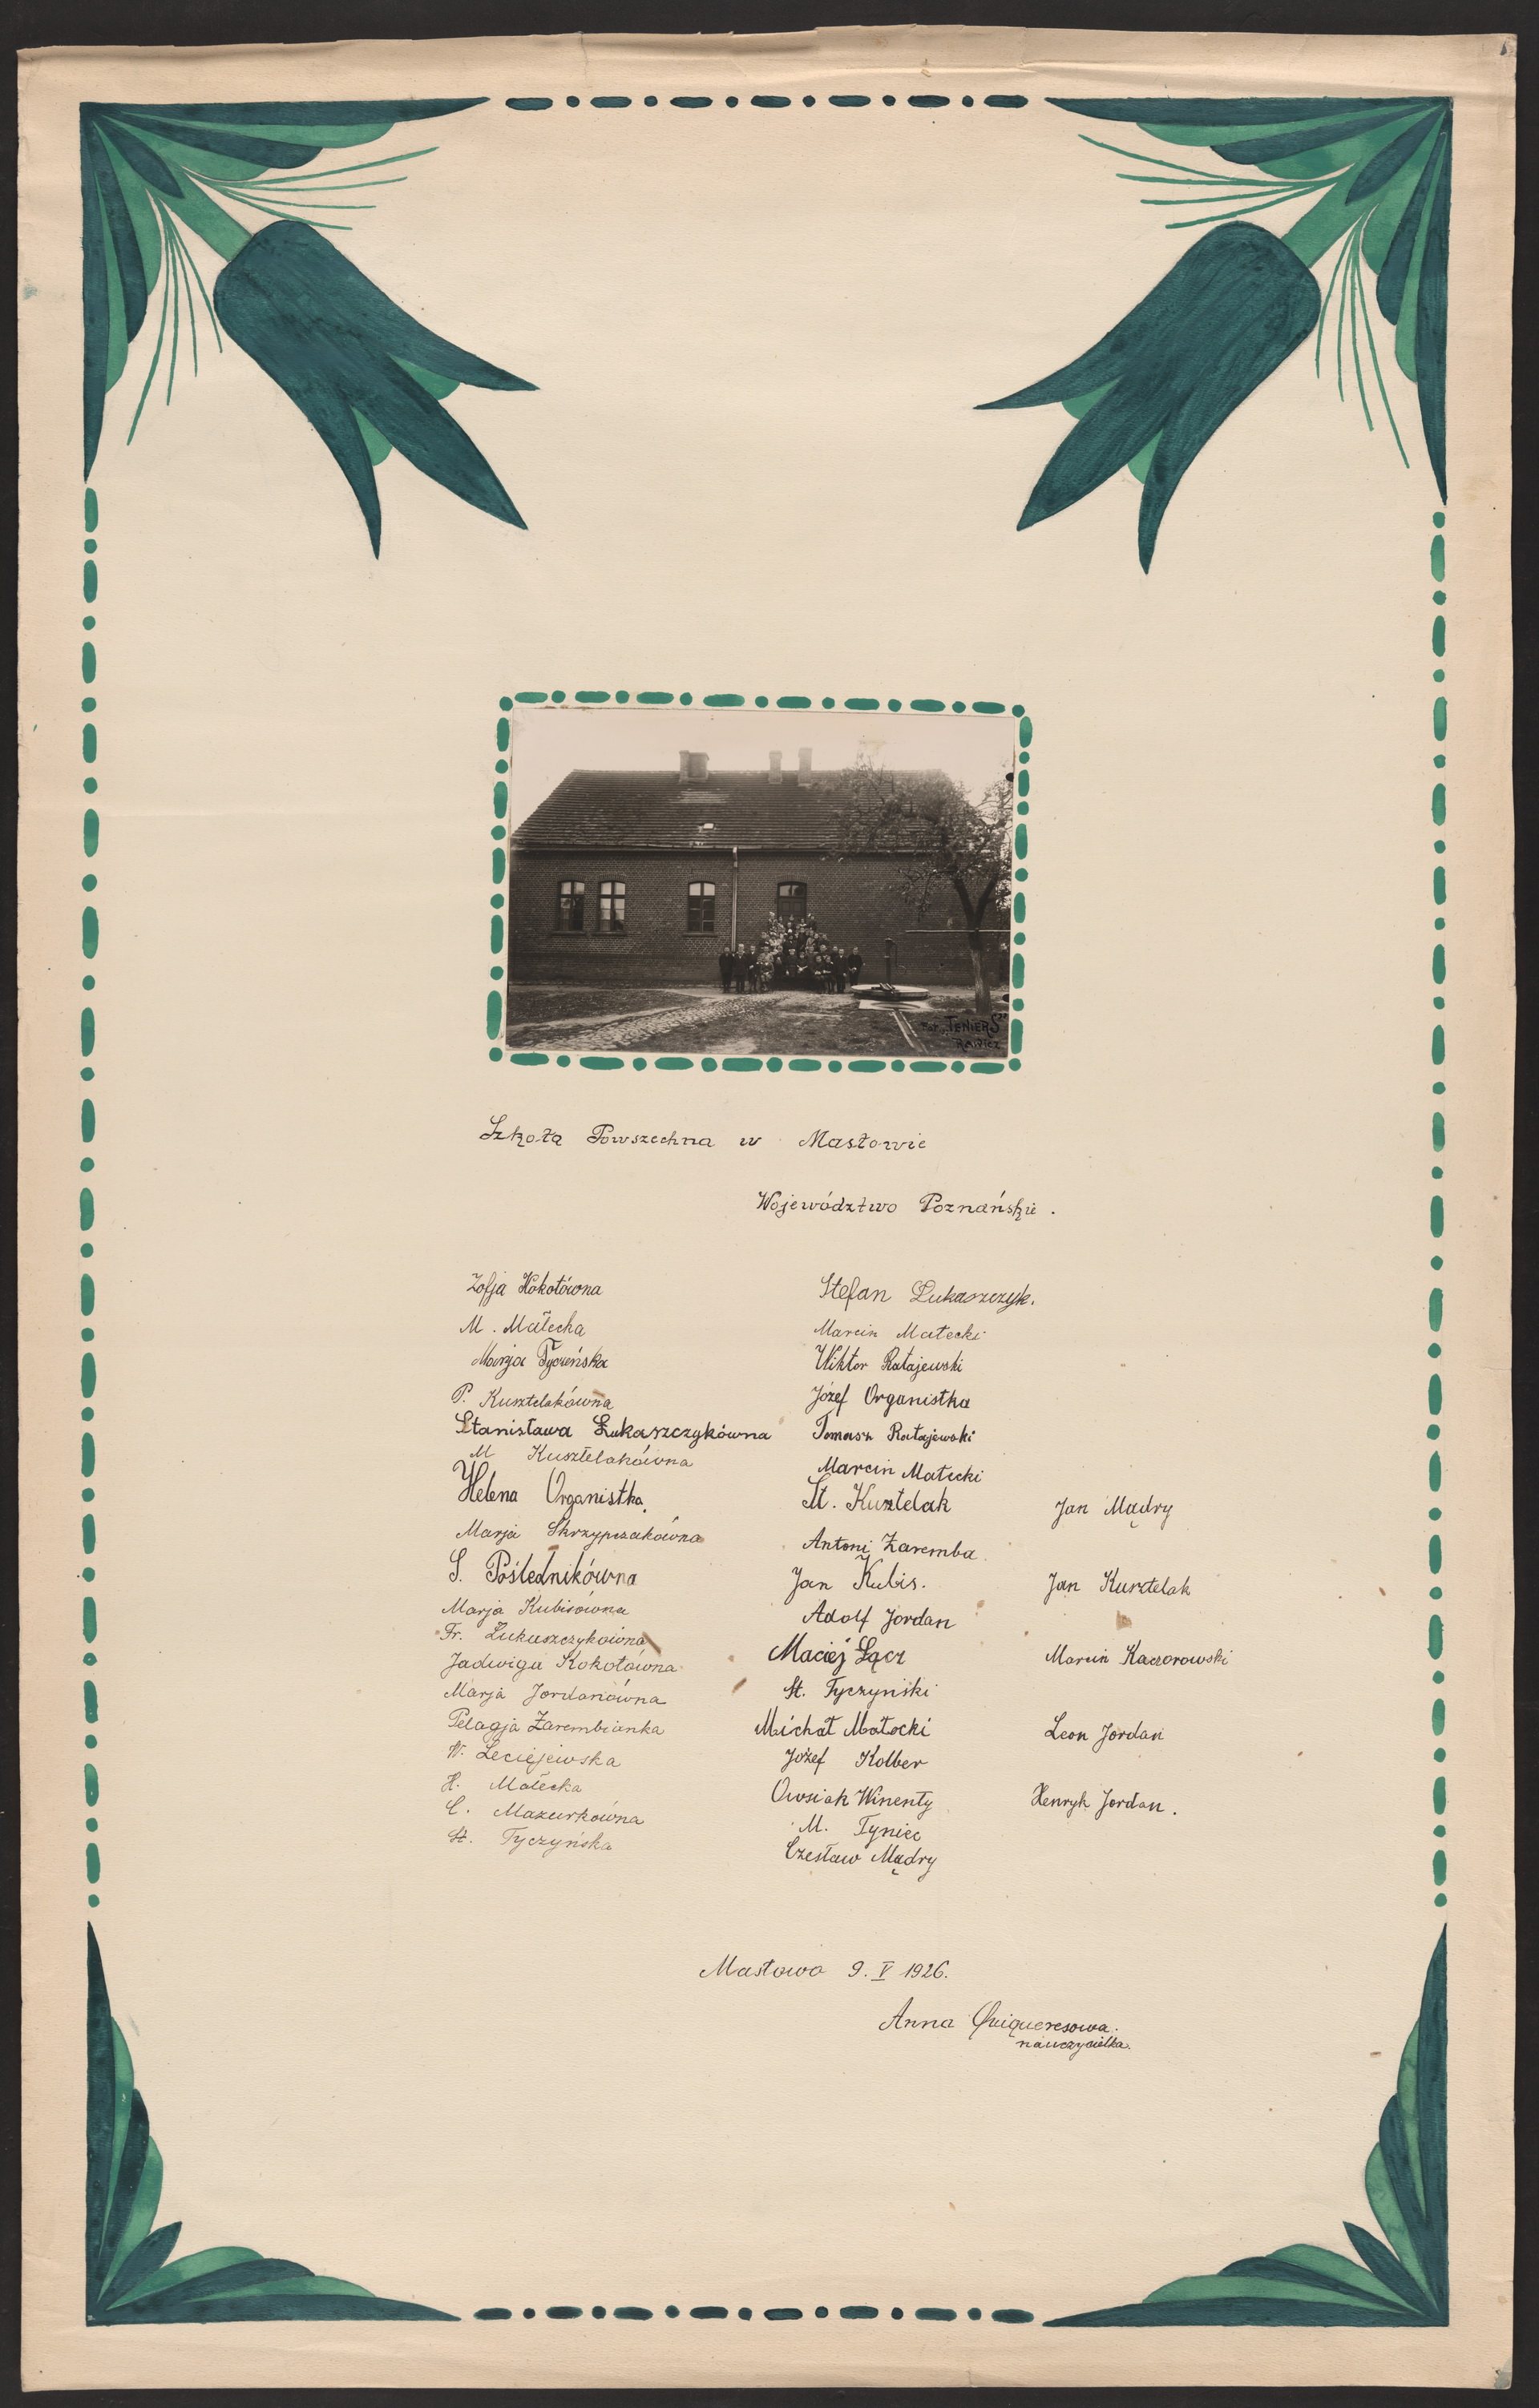 Fot. „TENIERS"
RAWICZ
Szkoła Powszechna w Masłowie
Województwo Poznańskie.
Zofja Kokotówna
M. Małecka
Marja Tyczeńska
P. Kusztelakówna
Stanisława Łukaszczykówna
M Kusztelakówna
Helena Organistka.
Marja Skrzypczakówna
S. Poślednikówna
Marja Kubisówna
Fr. Łukaszczykówna
Jadwiga Kokotówna
Marja Jordanówna
Pelagja Zarembianka
W. Leciejewska
H. Małecka
C. Mazurkówna
St. Tyczyńska
Stefan Łukaszczyk.
Marcin Małecki
Wiktor Ratajewski
Józef Organistka
Tomasz Ratajewski
Marcin Małecki
St. Kusztelak
Antoni Zaremba
Jan Kubis.
Adolf Jordan
Maciej Łącz
St. Tyczyński
Michał Małecki
Józef Kolber
Owsiak Winenty
M. Tyniec
Czesław Mądry
Jan Mądry
Jan Kusztelak
Marcin Kaczorowski
Leon Jordan
Henryk Jordan.
Masłowo 9. V 1926.
Anna Quiqueresowa.
nauczycielka.